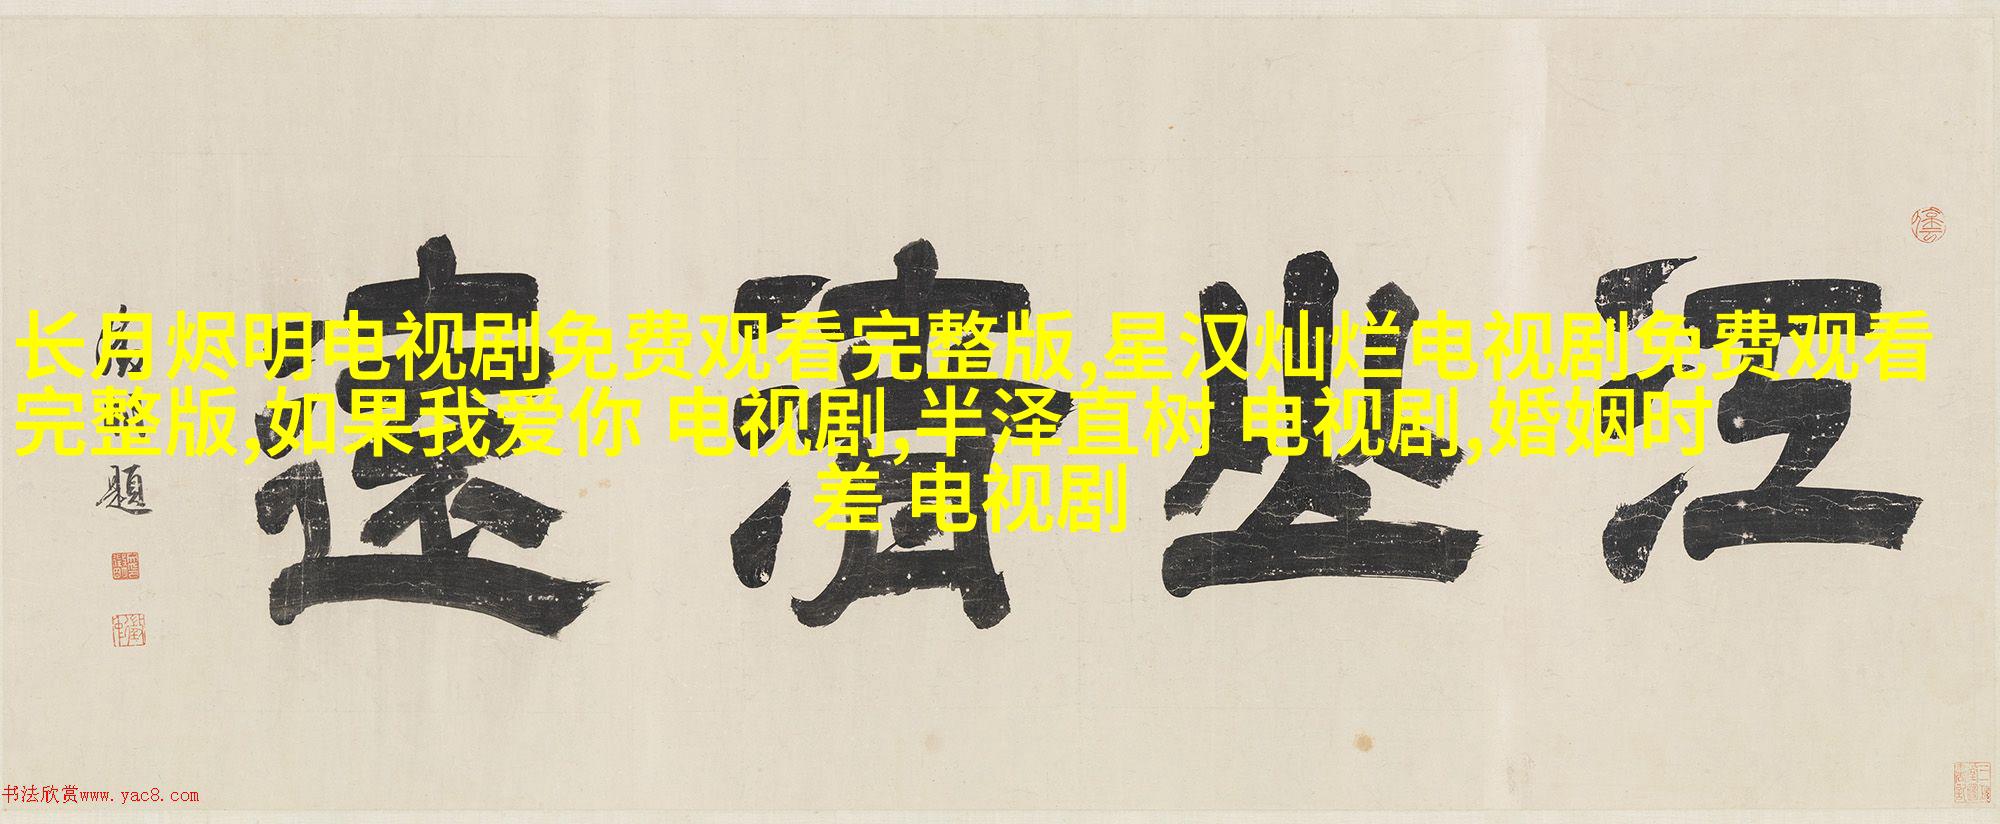 江山清遠
題
长月烬明电视剧免费观看完整版,星汉灿烂电视剧免费观看
完整版,如果我爱你 电视剧,半泽直树 电视剧,婚姻时
差 电视剧
书法欣赏www.yac8.com